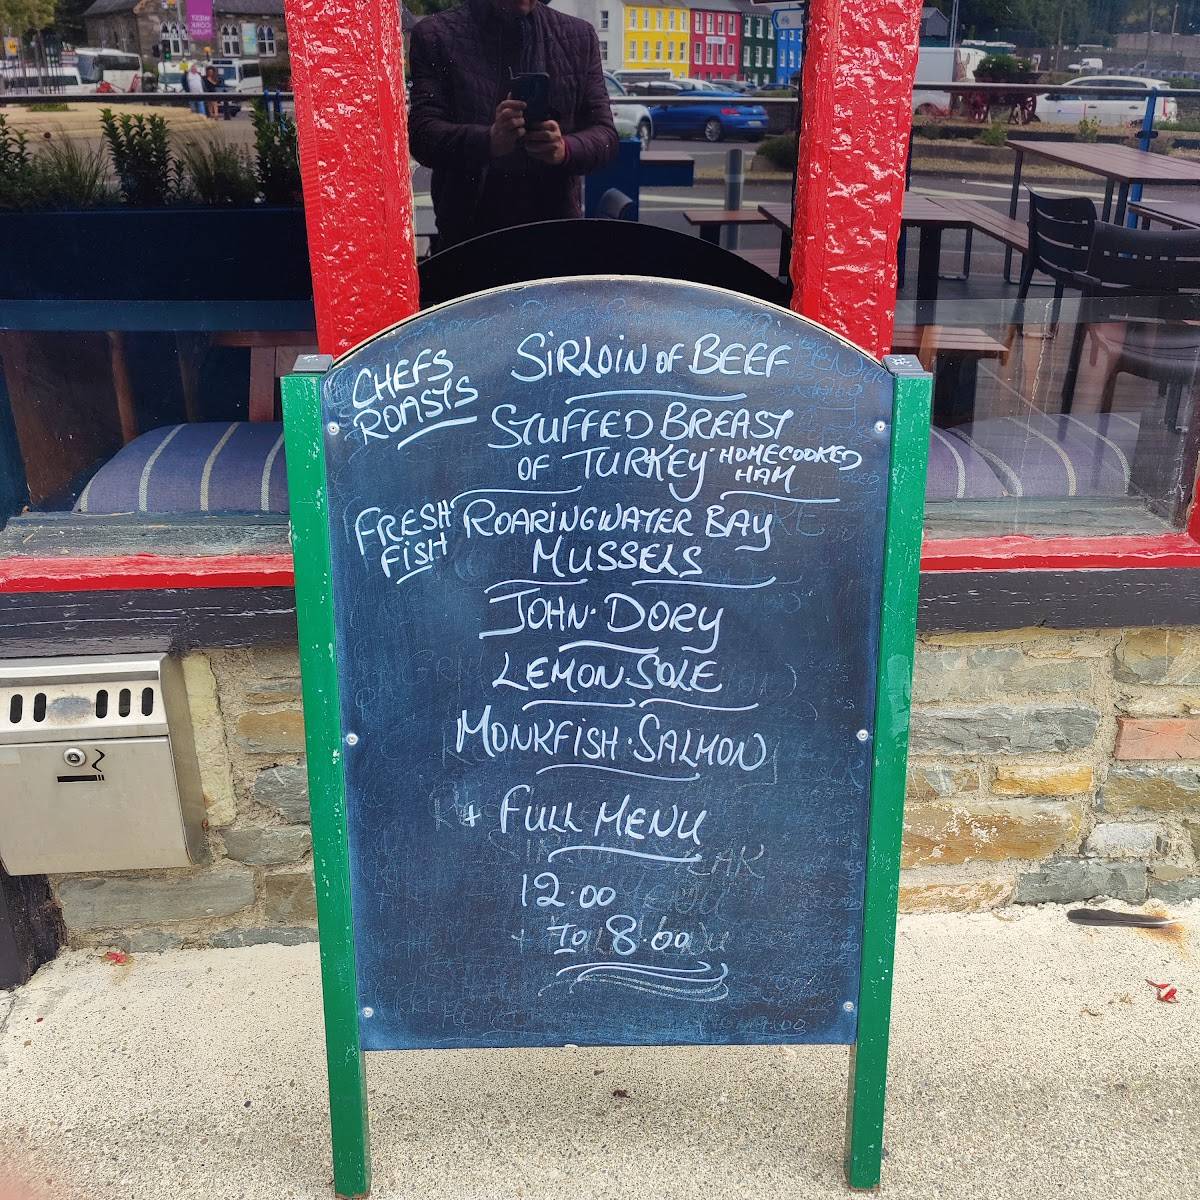 WEST
CORK
MUSIC
CHEFS
ROASTS
SIRLOIN OF BEEF
STUFFED BREAST
OF TURKEY · HOMECOOKED
HAM
FRESH
FISH
ROARINGWATER BAY
MUSSELS
JOHN · DORY
LEMON · SOLE
MONKFISH · SALMON
+ FULL MENU
12.00
TO 8.00